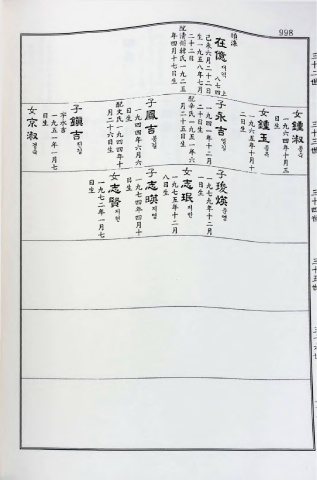 998
三十二世
三十三世
三十四世
三十五世
在億 재억
八七四上
己未六月二十二日
生一九五八年七月
二十二日
年四月十七日生
子永吉 영길
一九四一年十二月
二十日生
配辛氏一九五一年六
月二十五日生
子鳳吉 봉길
一九四四年六月六
日生
配文氏一九四四年十
月二十六日生
子鎭吉 진길
字水吉
一九五一年一月七
日生
女京淑 경숙
女鍾淑 종숙
一九六四年十月三
日生
女鍾玉 종옥
一九六五年十月十
二日生
子
一九七九年十二月
一日生
女志珉 지민
一九七五年十二月
八日生
子志暎 지영
一九七四年四月十
日生
女志賢 지현
一九七二年一月七
日生